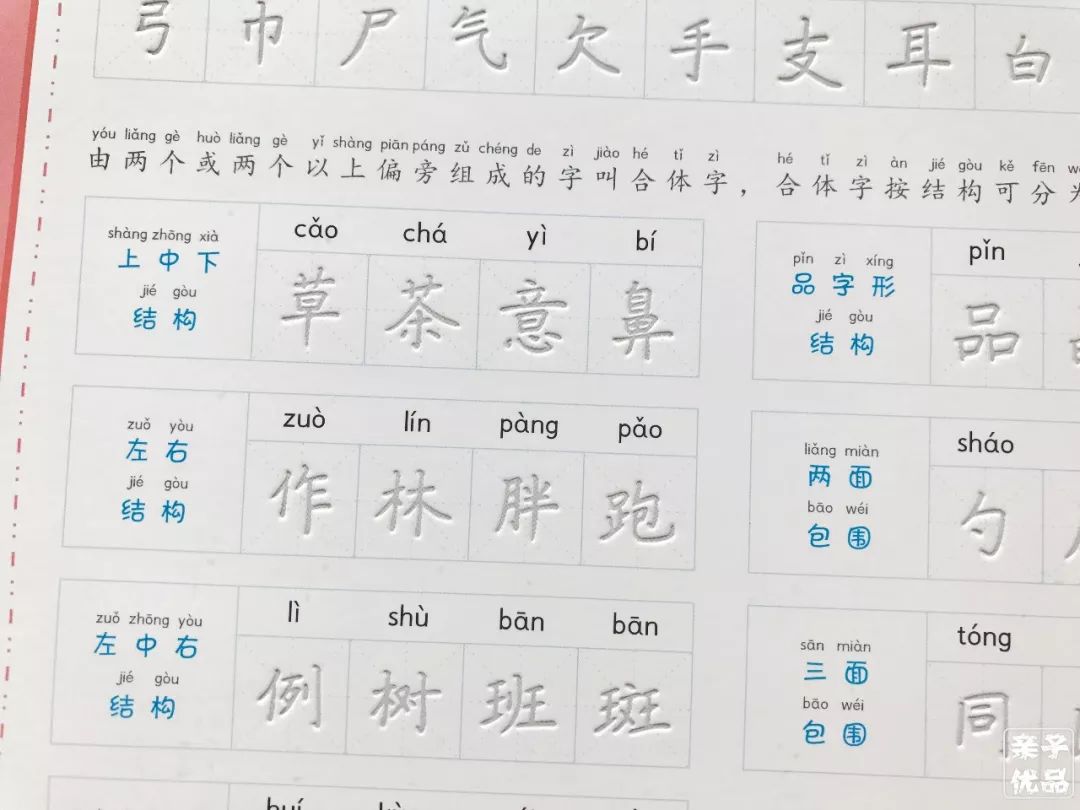 弓 巾 尸 气 欠 手 支 耳 白
yóu liǎng gè huò liǎng gè yǐ shàng piān páng zǔ chéng de zì jiào hé tǐ zì hé tǐ zì àn jié gòu kě fēn
由两个或两个以上偏旁组成的字叫合体字，合体字按结构可分
shàng zhōng xià
上中下
jié gòu
结构
cǎo chá yì bí
草 茶 意 鼻
pǐn zì xíng
品字形
jié gòu
结构
pǐn
品
zuǒ yòu
左右
jié gòu
结构
zuò lín pàng pǎo
作 林 胖 跑
liǎng miàn
两面
bāo wéi
包围
sháo
勺
zuǒ zhōng yòu
左中右
jié gòu
结构
lì shù bān bān
例 树 班 斑
sān miàn
三面
bāo wéi
包围
tóng
同
亲子
优品